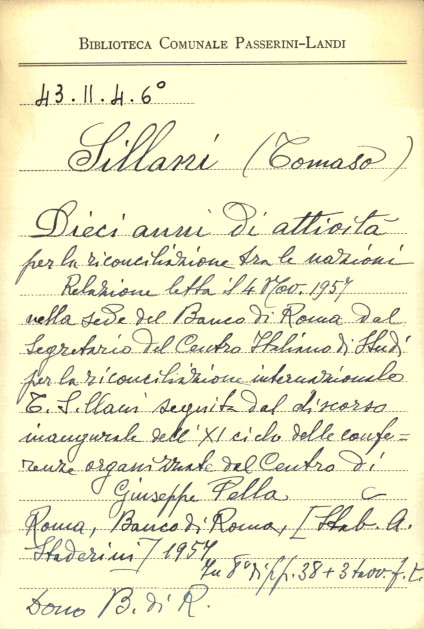 BIBLIOTECA COMUNALE PASSERINI-LANDI
43.II.4.6°
Sillani (Tomaso)
Dieci anni di attività
per la riconciliazione tra le nazioni
Relazione letta il 4 Nov. 1957
nella sede del Banco di Roma dal
Segretario del Centro Italiano di Studi
per la riconciliazione internazionale
T. Sillani seguita dal discorso
inaugurale dell'XI ciclo delle confe=
renze organizzate dal Centro di
Giuseppe Pella
Roma, Banco di Roma, [Stab. A.
Staderini] 1957
In 8° di pp. 38 + 3 tavv. f. t.
Dono B. di R.